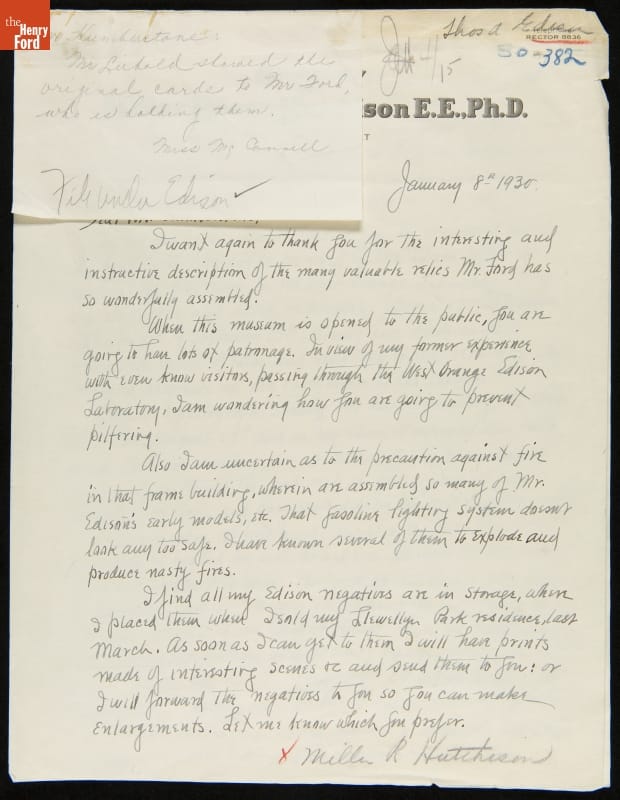 the
Henry
Ford
Thos A Edison
RECTOR 8836
30-382
15
Mr Liebold showed the
original cards to Mr Ford,
who is holding them.
Miss McConnell
File under Edison ✓
ison E.E., Ph.D.
T
January 8th 1930.
I want again to thank you for the interesting and
instructive description of the many valuable relics Mr. Ford has
so wonderfully assembled.
When this museum is opened to the public, you are
going to have lots of patronage. In view of my former experience
with even know visitors, passing through the West Orange Edison
Laboratory, I am wondering how you are going to prevent
pilfering.
Also I am uncertain as to the precaution against fire
in that frame building, wherein are assembled so many of Mr.
Edison's early models, etc. That gasoline lighting system doesn't
look any too safe. I have known several of them to explode and
produce nasty fires.
I find all my Edison negatives are in storage, where
I placed them when I sold my Llewellyn Park residence, last
March. As soon as I can get to them I will have prints
made of interesting scenes &c and send them to you: or
I will forward the negatives to you so you can make
enlargements. Let me know which you prefer.
x Miller R Hutchison